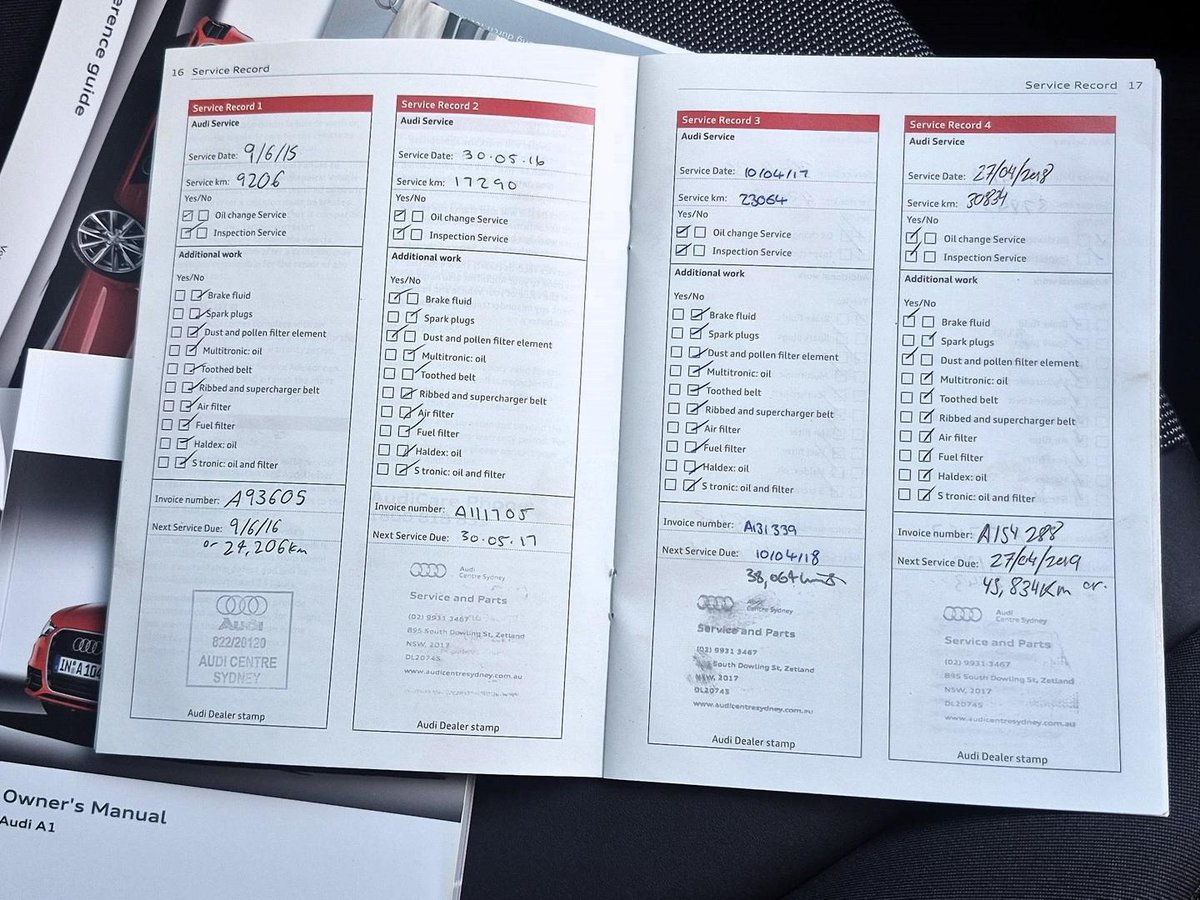 erence guide
16 Service Record
Service Record 1
Audi Service
Service Date: 9/6/15
Service km: 9206
Yes/No
Oil change Service
Inspection Service
Additional work
Yes/No
Brake fluid
Spark plugs
Dust and pollen filter element
Multitronic: oil
Toothed belt
Ribbed and supercharger belt
Air filter
Fuel filter
Haldex: oil
S tronic: oil and filter
Invoice number: A93605
Next Service Due: 9/6/16
or 24,206km
Audi
822/20120
AUDI CENTRE
SYDNEY
Audi Dealer stamp
Service Record 2
Audi Service
Service Date: 30.05.16
Service km: 17290
Yes/No
Oil change Service
Inspection Service
Additional work
Yes/No
Brake fluid
Spark plugs
Dust and pollen filter element
Multitronic: oil
Toothed belt
Ribbed and supercharger belt
Air filter
Fuel filter
Haldex: oil
S tronic: oil and filter
Invoice number: A111705
Next Service Due: 30.05.17
Audi
Centre Sydney
Service and Parts
(02) 9931 3467
895 South Dowling St, Zetland
NSW, 2017
DL20745
www.audicentresydney.com.au
Audi Dealer stamp
Service Record 17
Service Record 3
Audi Service
Service Date: 10/04/17
Service km: 23064
Yes/No
Oil change Service
Inspection Service
Additional work
Yes/No
Brake fluid
Spark plugs
Dust and pollen filter element
Multitronic: oil
Toothed belt
Ribbed and supercharger belt
Air filter
Fuel filter
Haldex: oil
S tronic: oil and filter
Invoice number: A131339
Next Service Due: 10/04/18
38,064
Audi
Centre Sydney
Service and Parts
(02) 9931 3467
South Dowling St, Zetland
NSW, 2017
DL20745
www.audicentresydney.com.au
Audi Dealer stamp
Service Record 4
Audi Service
Service Date: 27/04/2018
Service km: 30834
Yes/No
Oil change Service
Inspection Service
Additional work
Yes/No
Brake fluid
Spark plugs
Dust and pollen filter element
Multitronic: oil
Toothed belt
Ribbed and supercharger belt
Air filter
Fuel filter
Haldex: oil
S tronic: oil and filter
Invoice number: A154288
Next Service Due: 27/04/2019
45,834km or.
Audi
Centre Sydney
Service and Parts
(02) 9931 3467
895 South Dowling St, Zetland
NSW, 2017
DL20745
www.audicentresydney.com.au
Audi Dealer stamp
Owner's Manual
Audi A1